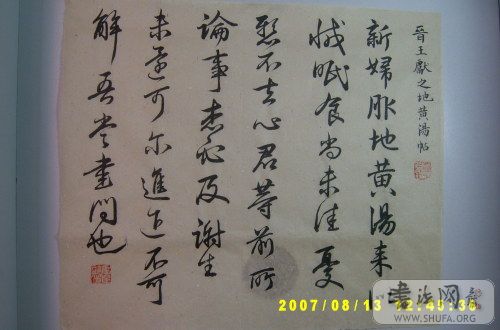 晉王獻之地黃湯帖
新婦服地黃湯來
減眠食尚未佳憂
懸不去心君等前所
論事想必及謝生
未還可尔進退不可
解吾當書問也
2007/08/13
书法网
WWW.SHUFA.ORG